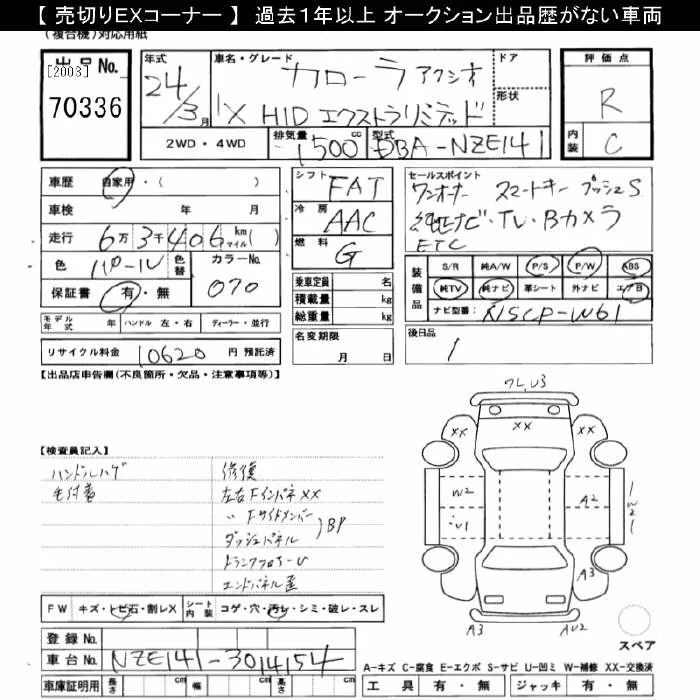 【 売切りEXコーナー 】 過去1年以上 オークション出品歴がない車両
(複合機)対応用紙
出品No.
[2003]
70336
年式 24/3月
車名・グレード カローラ アクシオ
1X HID エクストラリミテッド
ドア
形状
評価点
R
内装 C
2WD・4WD
排気量 1500cc
型式 DBA-NZE141
車歴 自家用・( )
車検 年 月
走行 6万3千406 km マイル( )
色 パール
色替
カラーNo. 070
保証書 有・無
シフト FAT
冷房 AAC
燃料 G
乗車定員 名
積載量 kg
総重量 kg
名変期限
月 日
セールスポイント
ワンオーナー スマートキー プッシュS
純正ナビ・TV・Bカメラ
ETC
装備品
S/R 純A/W P/S P/W ABS
純TV 純ナビ 革シート 外ナビ エアB
ナビ型番 NSCP-W61
モデル年式 年 ハンドル 左・右 ディーラー・並行
後日品
リサイクル料金 10620 円 預託済
【出品店申告欄(不良箇所・欠品・注意事項等)】
ワレ,U3
XX XX XX
W2 A2
U1
W2
A3
A3 AU2
スペア
【検査員記入】
ハンドルハゲ 修復
左右Fインパネ XX
〃 Fサイドメンバー
ダッシュパネル
BP
トランクフロアーU
エンドパネル歪
FW キズ・トビ石・割レX
シート内装 コゲ・穴・汚レ・シミ・破レ・スレ
登録No.
車台No. NZE141-3014154
車庫証明用 長さ cm 幅 cm 高さ cm
A-キズ C-腐食 E-エクボ S-サビ U-凹ミ W-補修 XX-交換済
工具 有・無 ジャッキ 有・無